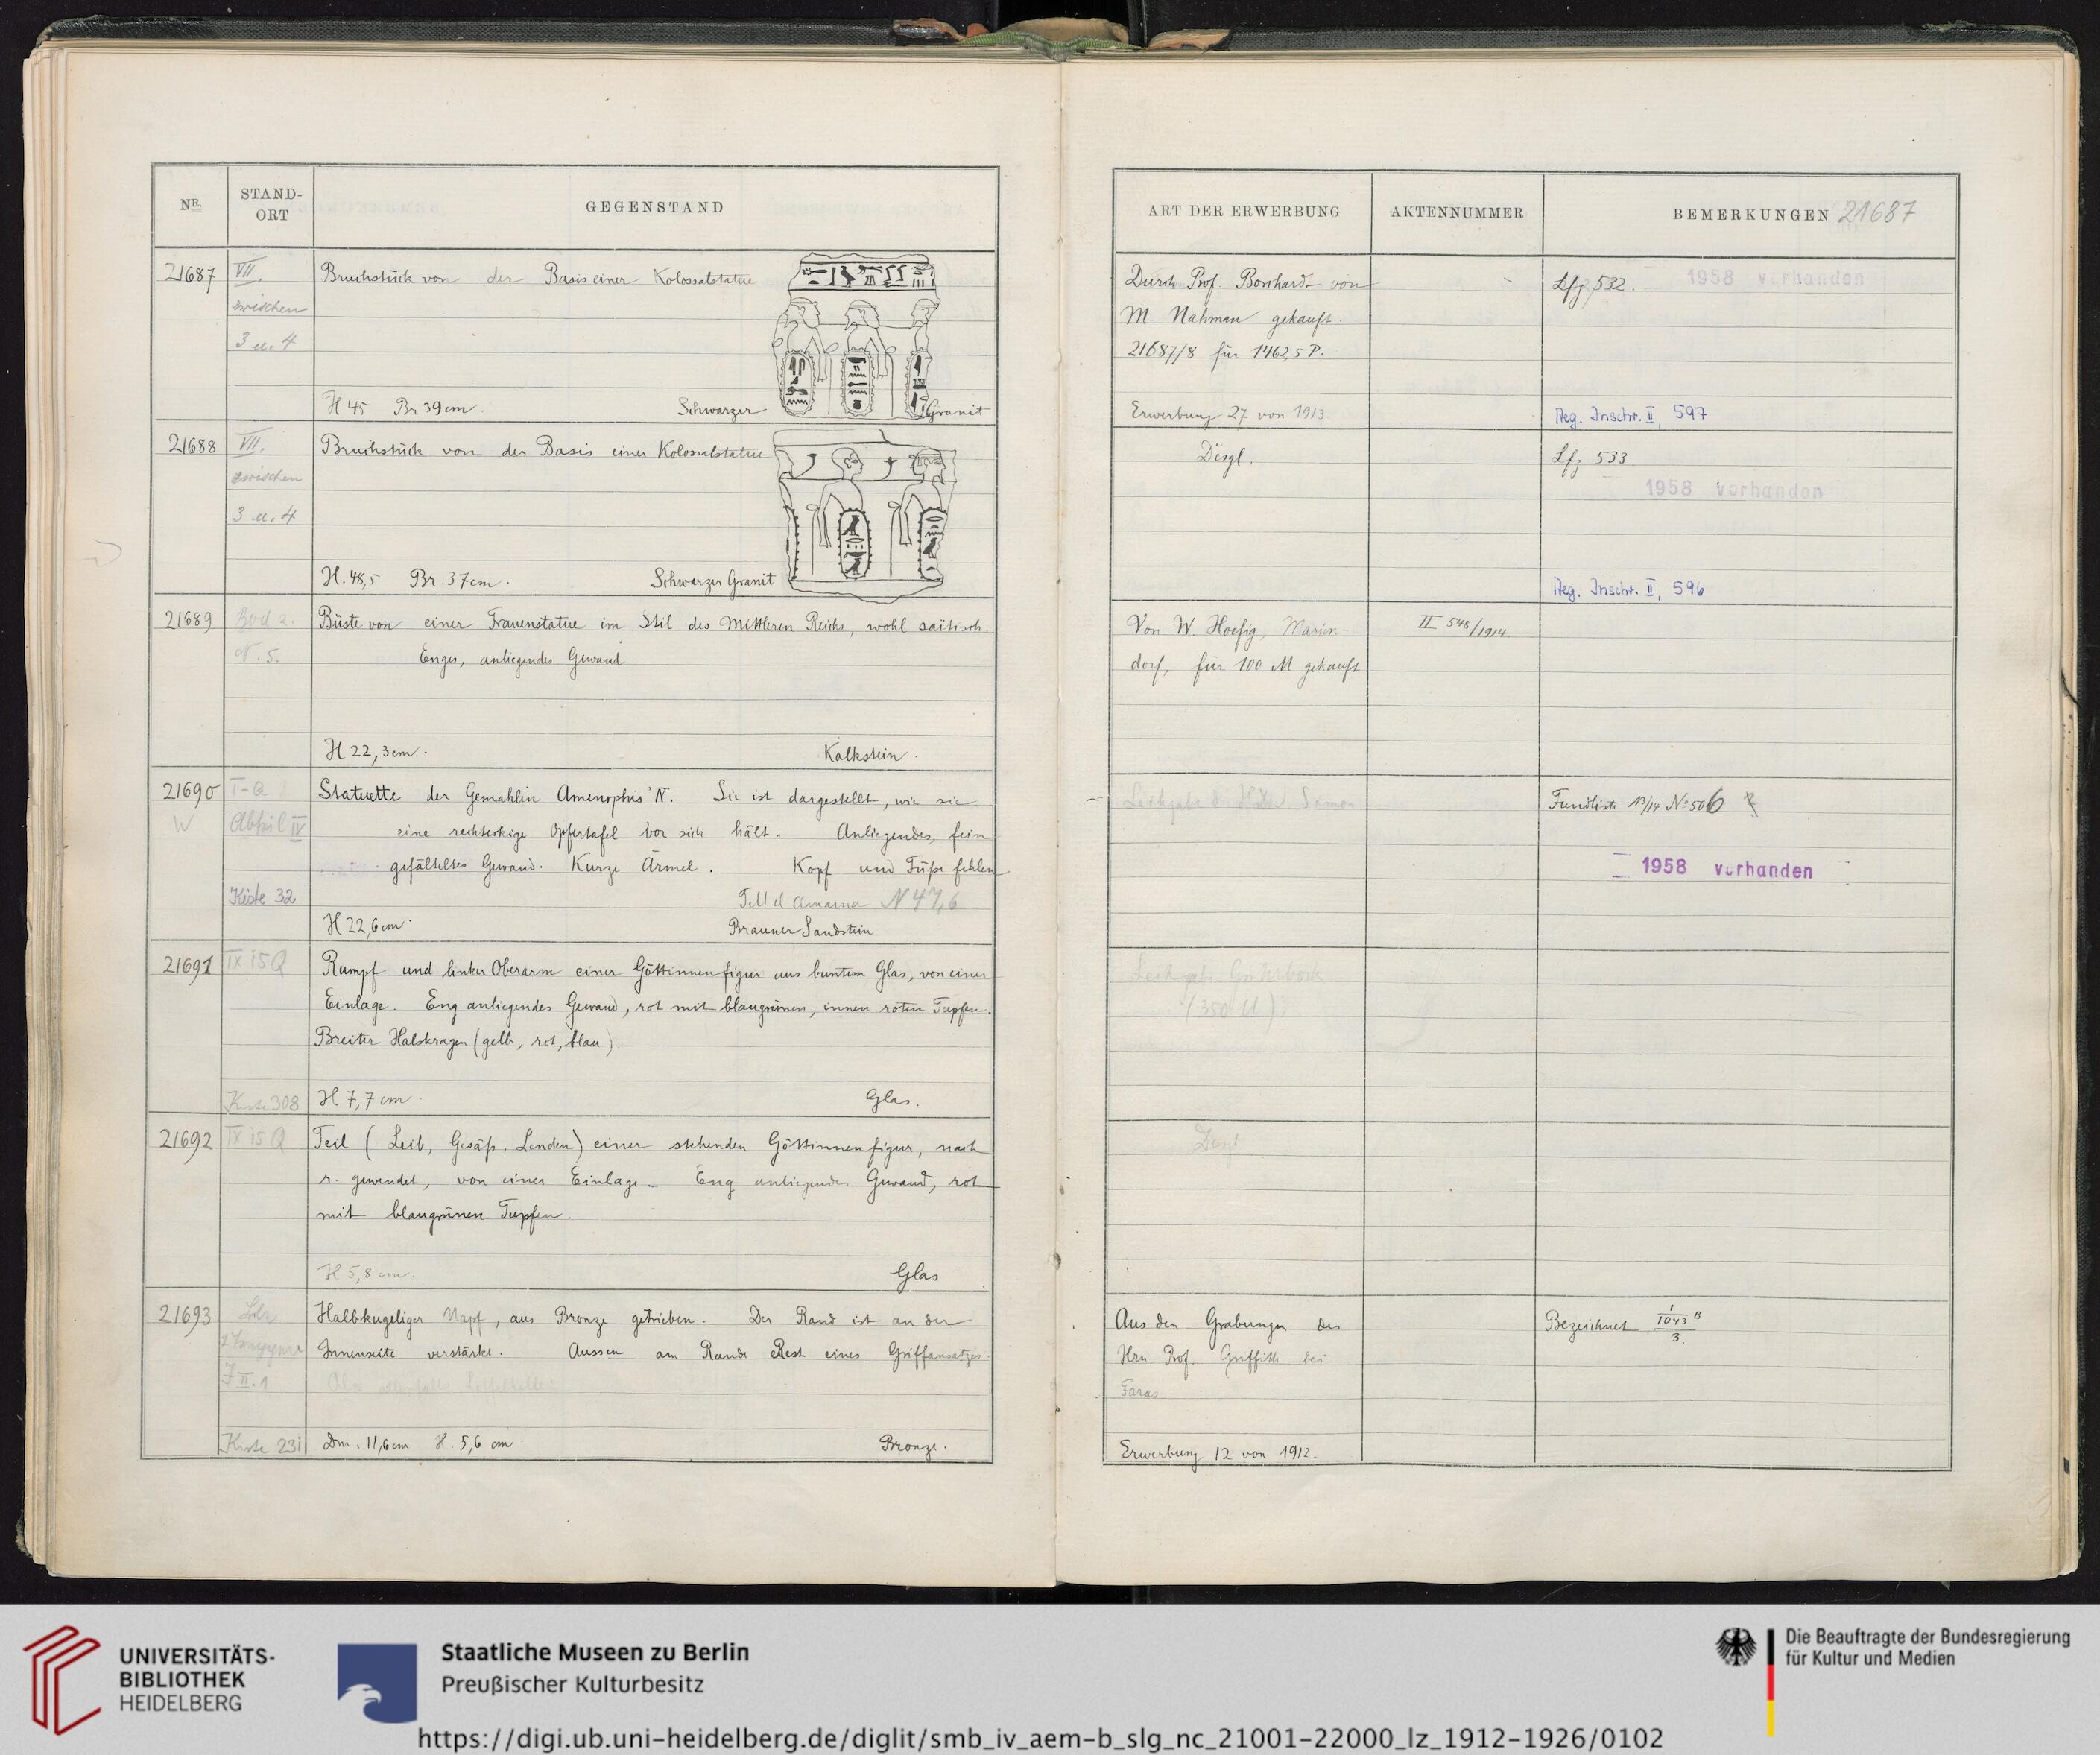 NR.
STAND-
ORT
GEGENSTAND
21687
VII.
zwischen
3 u. 4
Bruchstück von der Basis einer Kolossalstatue
H 45 Br 39 cm. Schwarzer Granit
21688
VII.
zwischen
3 u. 4
Bruchstück von der Basis einer Kolossalstatue
H. 48,5 Br. 37 cm. Schwarzer Granit
21689
Büste von einer Frauenstatue im Stil des Mittleren Reichs, wohl saitisch.
Enges, anliegendes Gewand
H 22,3 cm. Kalkstein.
21690
W
Kiste 32
Statuette der Gemahlin Amenophis' IV. Sie ist dargestellt, wie sie
eine rechteckige Opfertafel vor sich hält. Anliegendes, fein
gefälteltes Gewand. Kurze Ärmel. Kopf und Füße fehlen
Tell el Amarna N 47,6
H 22,6 cm. Brauner Sandstein
21691
IX 15 Q
Kiste 308
Rumpf und linker Oberarm einer Göttinnenfigur aus buntem Glas, von einer
Einlage. Eng anliegendes Gewand, rot mit blaugrünen, innen roten Tupfen.
Breiter Halskragen (gelb, rot, blau)
H 7,7 cm. Glas.
21692
IX 15 Q
Teil (Leib, Gesäß, Lenden) einer stehenden Göttinnenfigur, nach
r. gewendet, von einer Einlage. Eng anliegendes Gewand, rot
mit blaugrünen Tupfen.
H 5,8 cm. Glas
21693
Kiste 231
Halbkugeliger Napf, aus Bronze getrieben. Der Rand ist an der
Innenseite verstärkt. Aussen am Rande Rest eines Griffansatzes.
Dm. 11,6 cm H. 5,6 cm. Bronze.
ART DER ERWERBUNG
AKTENNUMMER
BEMERKUNGEN 21687
Durch Prof. Borchardt von
M Nahman gekauft.
21687/8 für 1462,5 P.
Erwerbung 27 von 1913
Lfz 532. 1958 vorhanden
Aeg. Inschr. II, 597
Desgl.
Lfz 533
1958 vorhanden
Aeg. Inschr. II, 596
Von W. Hoefig, Marien-
dorf, für 100 M gekauft
II 548/1914
Fundliste 13/14 No 506
1958 vorhanden
(350 M).
Desgl
Aus den Grabungen des
Hrn Prof. Griffith bei
Faras
Erwerbung 12 von 1912.
Bezeichnet 1/1043 B/3.
UNIVERSITÄTS-
BIBLIOTHEK
HEIDELBERG
Staatliche Museen zu Berlin
Preußischer Kulturbesitz
Die Beauftragte der Bundesregierung
für Kultur und Medien
https://digi.ub.uni-heidelberg.de/diglit/smb_iv_aem-b_slg_nc_21001-22000_lz_1912-1926/0102